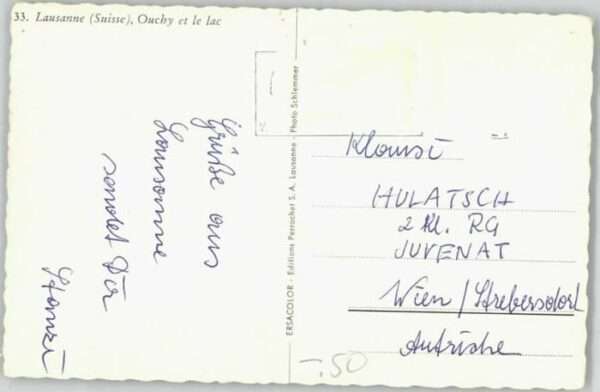 33. Lausanne (Suisse), Ouchy et le lac
Grüße aus
Lausanne
sendet Dir
Hansi
ERSACOLOR - Editions Perrochet S. A. Lausanne - Photo Schlemmer
Klausi
HULATSCH
2 Kl. RG
JUVENAT
Wien / Strebersdorf
Autriche
-.50